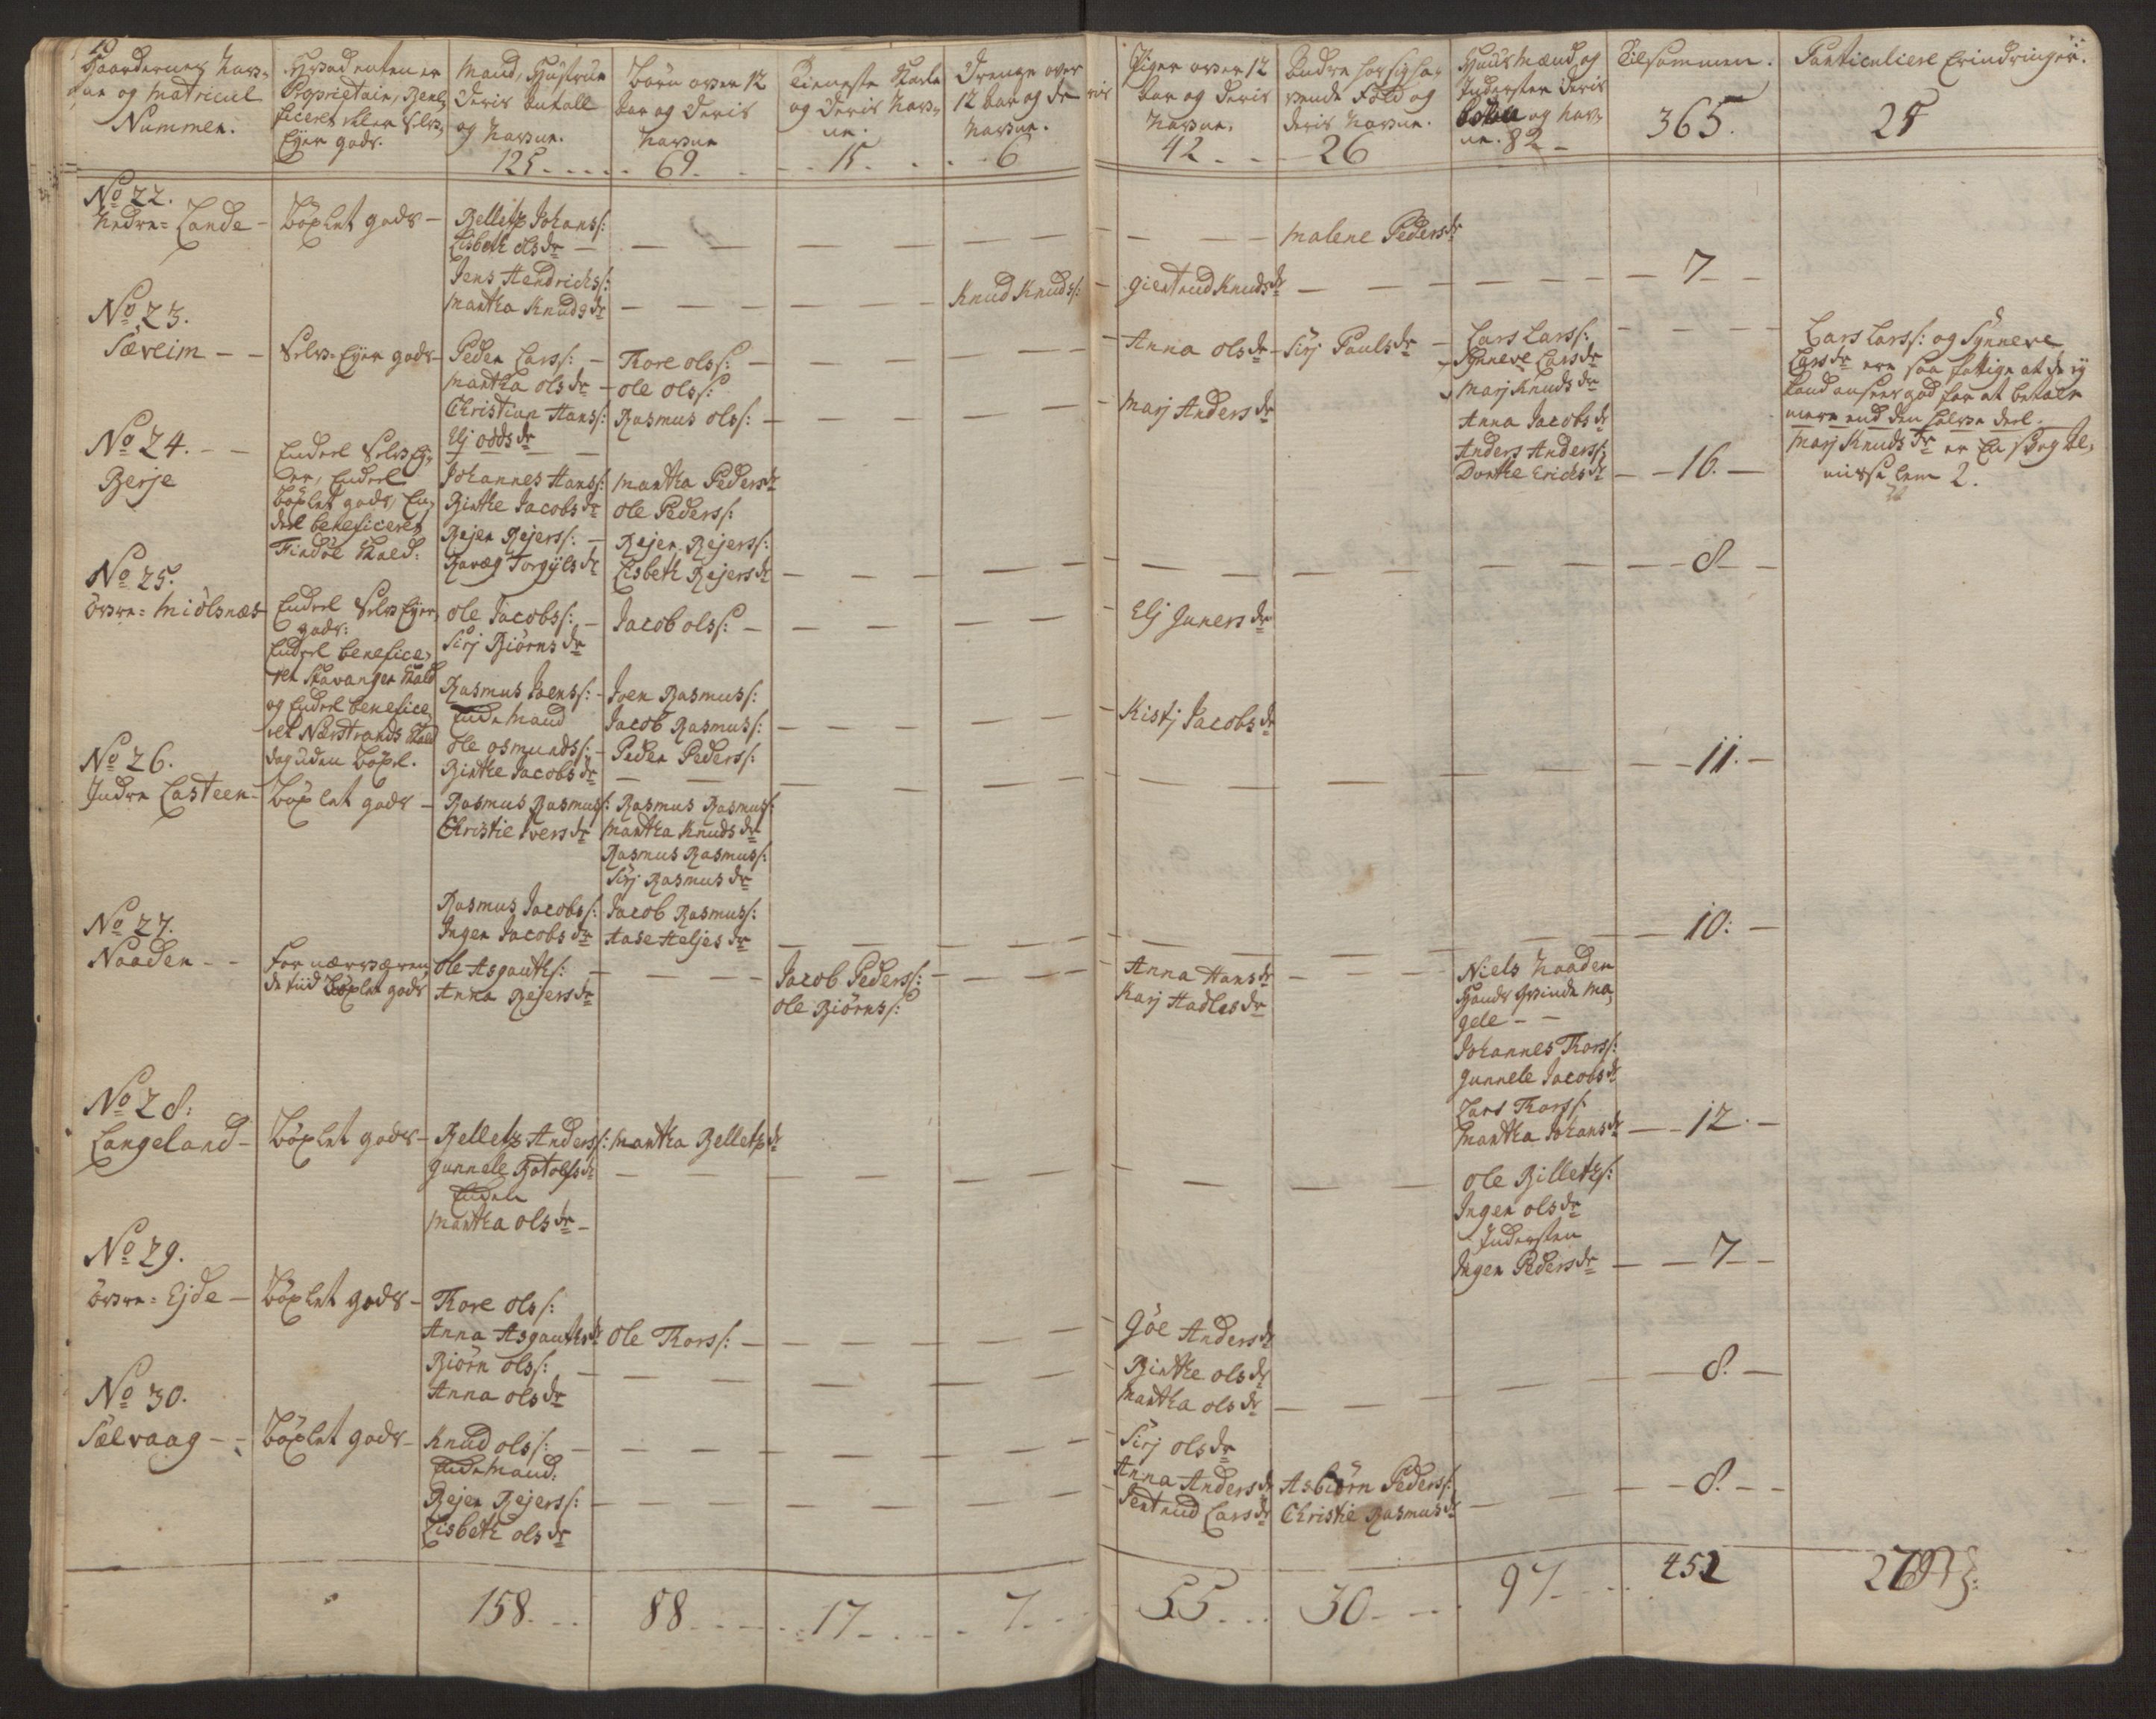 Gaardernes Nav-
ne og Matricul
Nummer.
Hvad enten er
Proprietair, Bene-
ficeret eller Selv-
Eyer gods.
Mand, Hustrue
Deris Antall
og Navne.
125
Börn over 12
Aar og Deris
Navne
69
Tieneste Karle
og Deris Nav-
ne.
15
Drenge over
12 Aar og de
ris
Navne.
6
Piger over 12
Aar og Deris
Navne.
42
Andre hos sig ha-
vende Fold og
deris Navne.
26
Huusmænd og
Inderster Deris
og Nav-
ne. 82
Tilsammen.
365.
Particuliere Erindringer.
25
No 22.
Nedre = Lande - Böxlet gods -
Belletz Johans/:
Lisbeth olsdr
Malene Pedersdr
Jens Hendrichs/:
Martha Knudsdr
Knud Knuds/:
Giertrud Knudsdr
7
No 23.
Sæveim - - Selv-Eyer gods -
Peder Lars/: -
Martha olsdr -
Christian Hans/:
Elj oddsdr
Tore ols/:
ole ols/:
Rasmus ols/: -
Anna olsdr
Marj Andersdr
Sirj Paulsdr
Lars Lars/:
Synneve Larsdr
Marj Knudsdr
Anna Jacobsdr
Anders Anders/:
Dorthe Erichsdr
16.
Lars Lars/: og Synneve
Larsdr ere saa fattige at de ey
kand ansees god for at betale
mere end den halve deel.
Marj Knudsdr er En
lem 2.
No 24. - -
Berje
Endeel Selv Ey-
er, Endeel
böxlet gods, En-
deel beneficeret
Findöe Kald:
Johannes Hans/:
Birthe Jacobsdr
Rejer Rejers/: -
Torgilsdr
Martha Pedersdr
ole Peders/:
Rejer Rejers/:
Lisbeth Rejersdr
8
No 25.
övre = Miölsnæs
Endeel Selv Eyer
gods:
Endeel benefice-
ret Stavanger Kald
og Endeel benefice-
ret Nerstrands Kald
dog uden böxl.
ole Jacobs/: -
Sirj Biörnsdr
Rasmus Joens/: -
Enkemand
ole osmunds/: -
Birthe Jacobsdr
Jacob ols/: -
Joen Rasmus/:
Jacob Rasmus/:
Peder Peders/:
Elj Gunersdr
Kistj Jacobsdr
11.
No 26.
Indre Lasteen - Böxlet gods -
Rasmus Rasmus/:
Christie Iversdr
Rasmus Jacobs/:
Inger Jacobsdr
Rasmus Rasmus/:
Martha Knudsdr
Rasmus Rasmus/:
Sirj Rasmusdr
Jacob Rasmus/:
Aase Heljesdr
10:
No 27.
Naaden - -
For nærværen-
de tiid Böxlet gods
Ole Asgauts/:
Anna Rejersdr
Jacob Peders/:
ole Biörns/:
Anna Hansdr
Karj Hadlesdr
Niels Naaden
Hands Qvinde Ma-
gele - -
Johannes Thors/:
Gunnele Jacobsdr
Lars Thors/:
Martha Johansdr
12.
No 28:
Langeland - Böxlet gods -
Belletz Anders/:
Gunnele Botolfsdr
Encken
Martha olsdr -
Martha Belletzdr
ole Billetz/:
Inger olsdr
Indersten
Inger Pedersdr
7
No 29.
övre = Ejde - Böxlet gods -
Thore ols/:
Anna Asgautsdr
Biörn ols/:
Anna olsdr
ole Thors/: -
Göe Andersdr
Birthe olsdr
Martha olsdr
8.
No 30.
Sælvaag - - Böxlet gods -
Knud ols/:
Enkemand.
Rejer Rejers/:
Lisbeth olsdr
Sirj olsdr
Anna Andersdr
Jertrud Larsdr
Asbiörn Peders/:
Christie Rasmusdr
8.
158.
88
17
7.
55
30
97
452